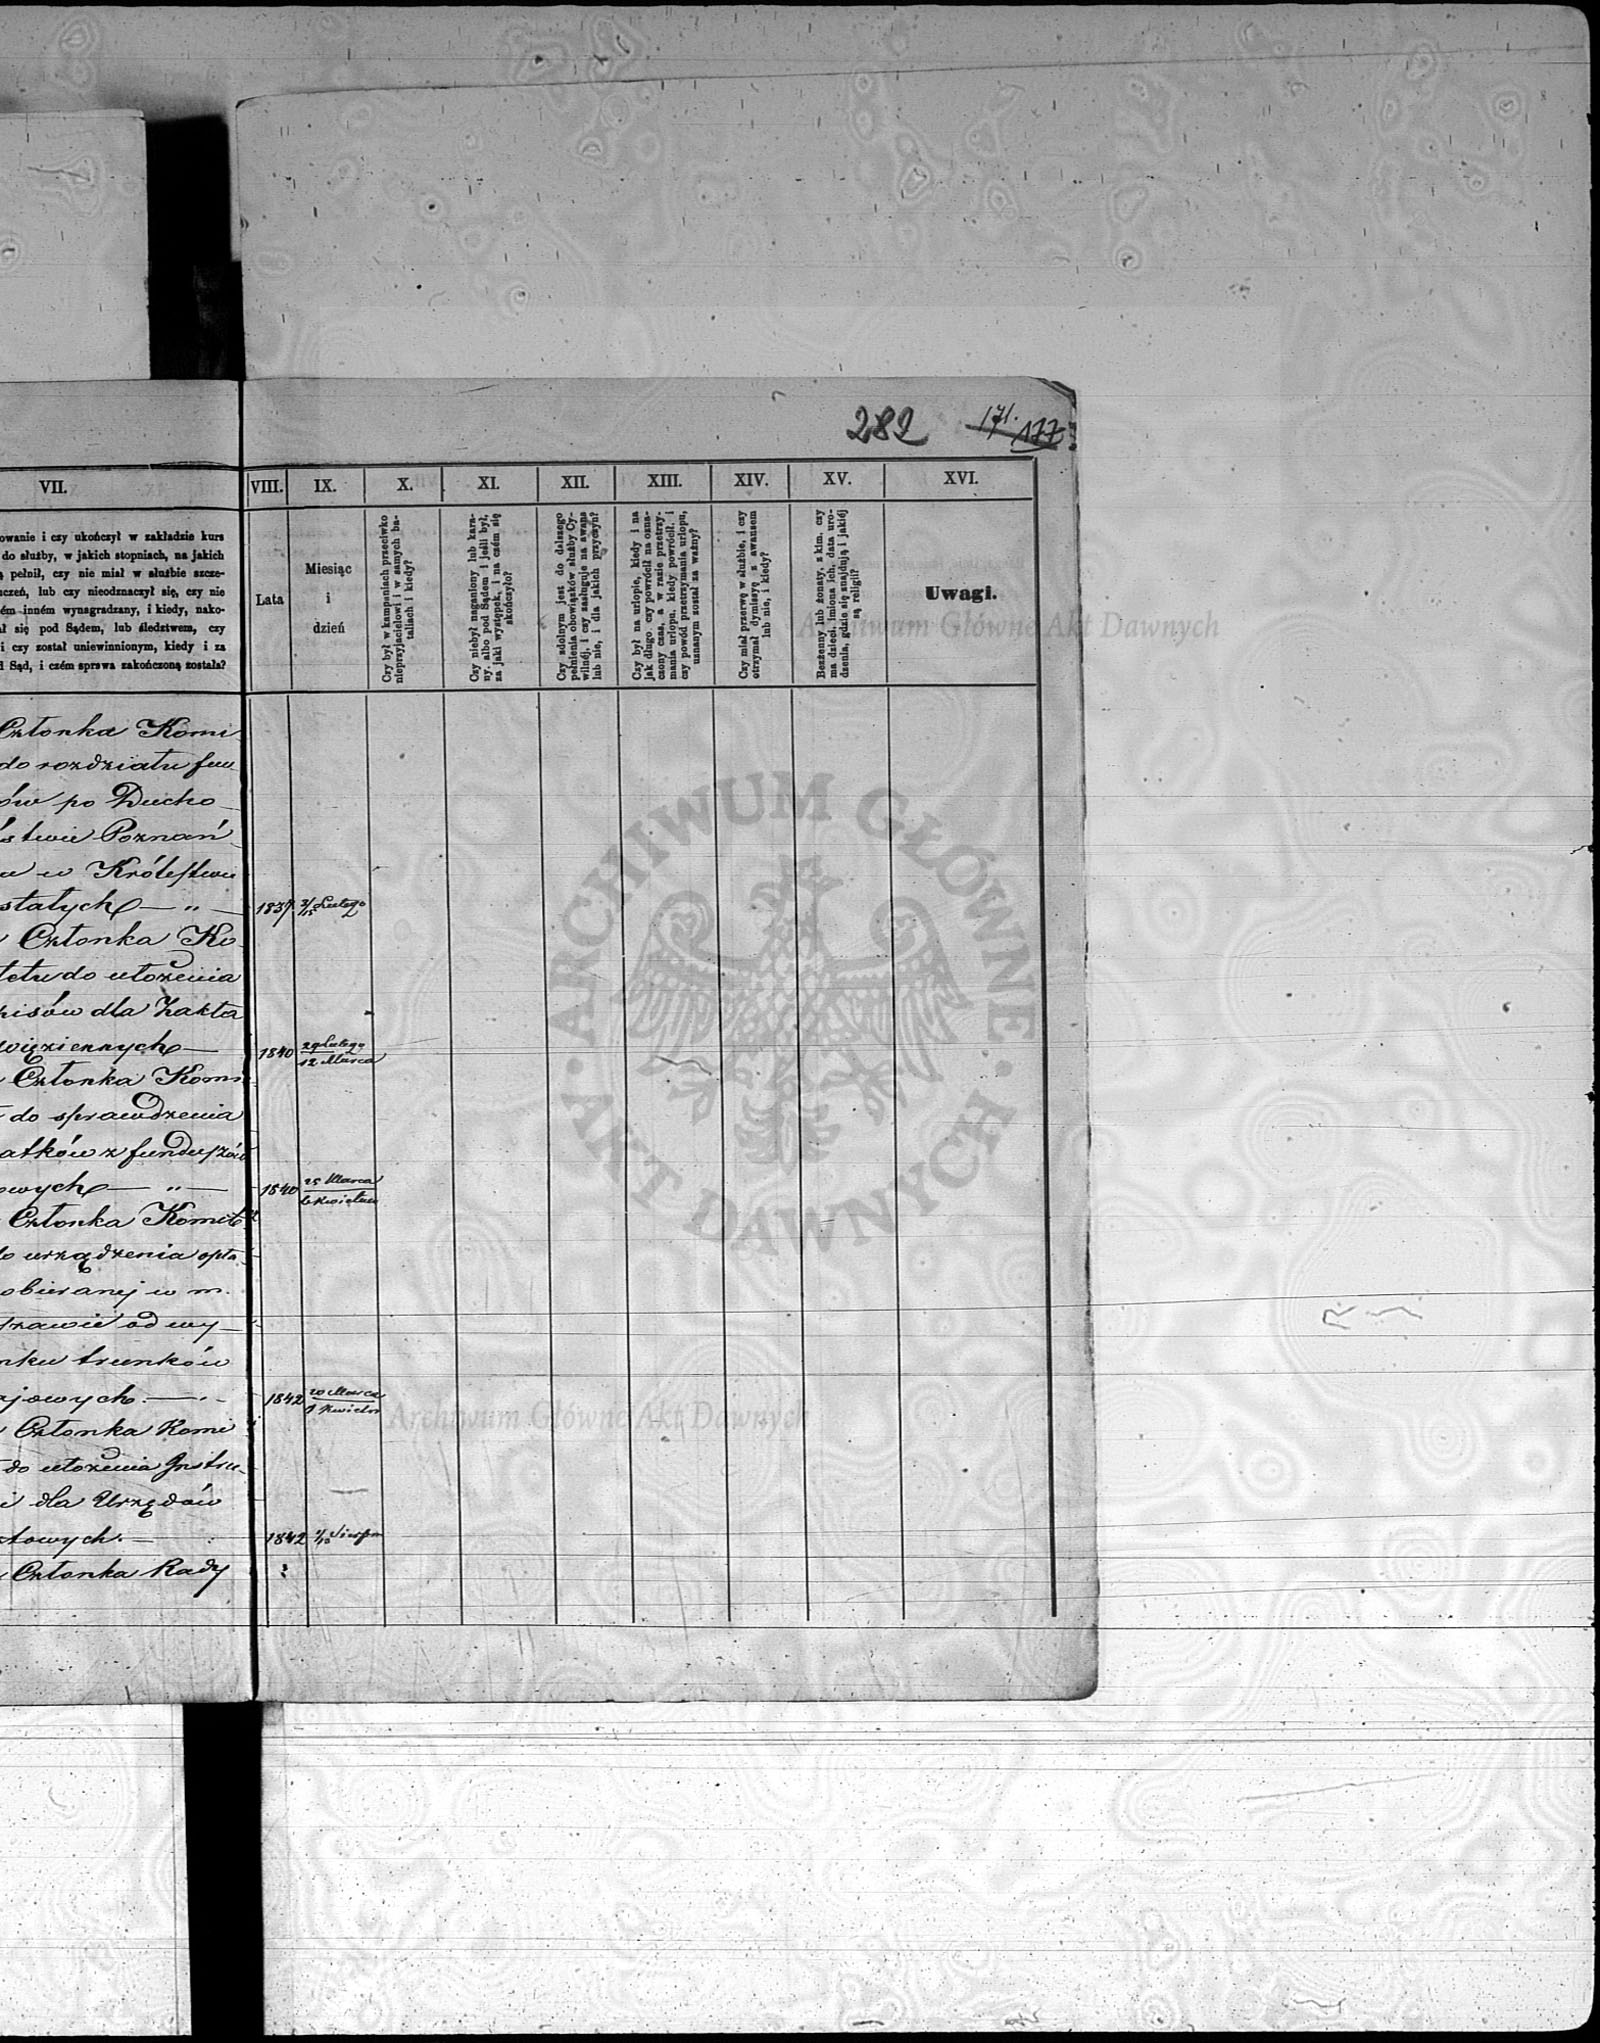 282 171. 177
VII. VIII. IX. X. XI. XII. XIII. XIV. XV. XVI.
owanie i czy ukończył w zakładzie kurs
do służby, w jakich stopniach, na jakich
pełnił, czy nie miał w służbie szcze-
czeń, lub czy nieodznaczył się, czy nie
ém inném wynagradzany, i kiedy, nako-
ł się pod Sądem, lub śledztwem, czy
i czy został uniewinnionym, kiedy i za
Sąd, i czém sprawa zakończoną została?
Lata
Miesiąc
i
dzień
Czy był w kampaniach przeciwko
nieprzyjacielowi i w samych ba-
taliach i kiedy?
Czy niebył naganiony lub kara-
ny, albo pod Sądem i jeśli był,
za jaki występek, i na czém się
skończyło?
Czy zdolnym jest do dalszego
pełnienia obowiązków służby Cy-
wilnéj, i czy zasługuje na awans
lub nie, i dla jakich przyczyn?
Czy był na urlopie, kiedy i na
jak długo, czy powrócił na ozna-
czony czas, a w razie przetrzy-
mania urlopu, kiedy powrócił, i
czy powód przetrzymania urlopu,
uznanym został za ważny?
Czy miał przerwę w służbie, i czy
otrzymał dymissyę z awansem
lub nie, i kiedy?
Bezżenny lub żonaty, z kim, czy
ma dzieci, imiona ich, data uro-
dzenia, gdzie się znajdują i jakiéj
są religii?
Uwagi.
Członka Komi
do rozdziału fun
ów po Ducho
stwie Poznań
w Królestwie
stałych — " — 1837. 3/15 Lutego
Członka Ko
tetu do ułożenia
pisów dla Zakła
więziennych — 1840 29 Lutego / 12 Marca
Członka Komi
do sprawdzenia
atków z funduszów
owych — " — 1840 25 Marca / 6 Kwietnia
Członka Komit
do urządzenia opła
obieranej w m.
szawie od wy
nku trunków
ajowych. — 1842 20 Marca / 1 Kwietn
Członka Komi
do ułożenia Instru
i dla Urzędów
towych. — 1842 Sierpn
Członka Rady
ARCHIWUM GŁÓWNE AKT DAWNYCH
Archiwum Główne Akt Dawnych
Archiwum Główne Akt Dawnych